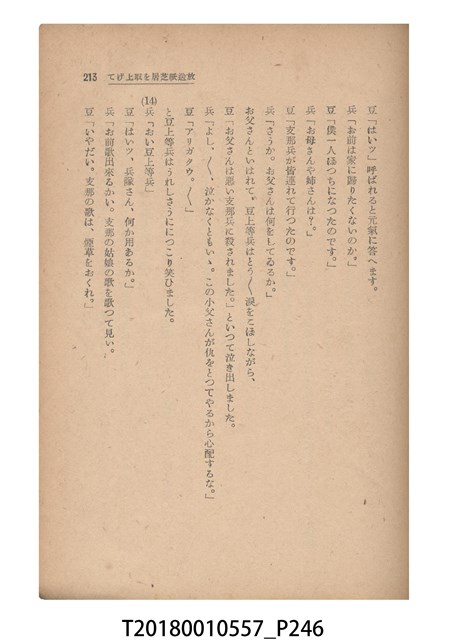 213 てげ上取を居芝紙説放
豆「はいッ」呼ばれると元氣に答へます。
兵「お前は家に歸りたくないのか。」
豆「僕一人ぼつちになつたのです。」
兵「お母さんや姉さんは?。」
豆「支那兵が皆連れて行つたのです。」
兵「さうか。お父さんは何をしてゐるか。」
お父さんといはれて、豆上等兵はとう〱淚をこぼしながら、
豆「お父さんは悪い支那兵に殺されました。」といつて泣き出しました。
兵「よし、〱、泣かなくともいゝ。この小父さんが仇をとつてやるから心配するな。」
豆「アリガタウ。〱」
と豆上等兵はうれしさうににつこり笑ひました。
(14)
兵「おい豆上等兵」
豆「はいッ、兵隊さん、何か用あるか。」
兵「お前歌出來るかい。支那の姑娘の歌を歌つて見い。
豆「いやだい。支那の歌は、煙草をおくれ。」
T20180010557_P246